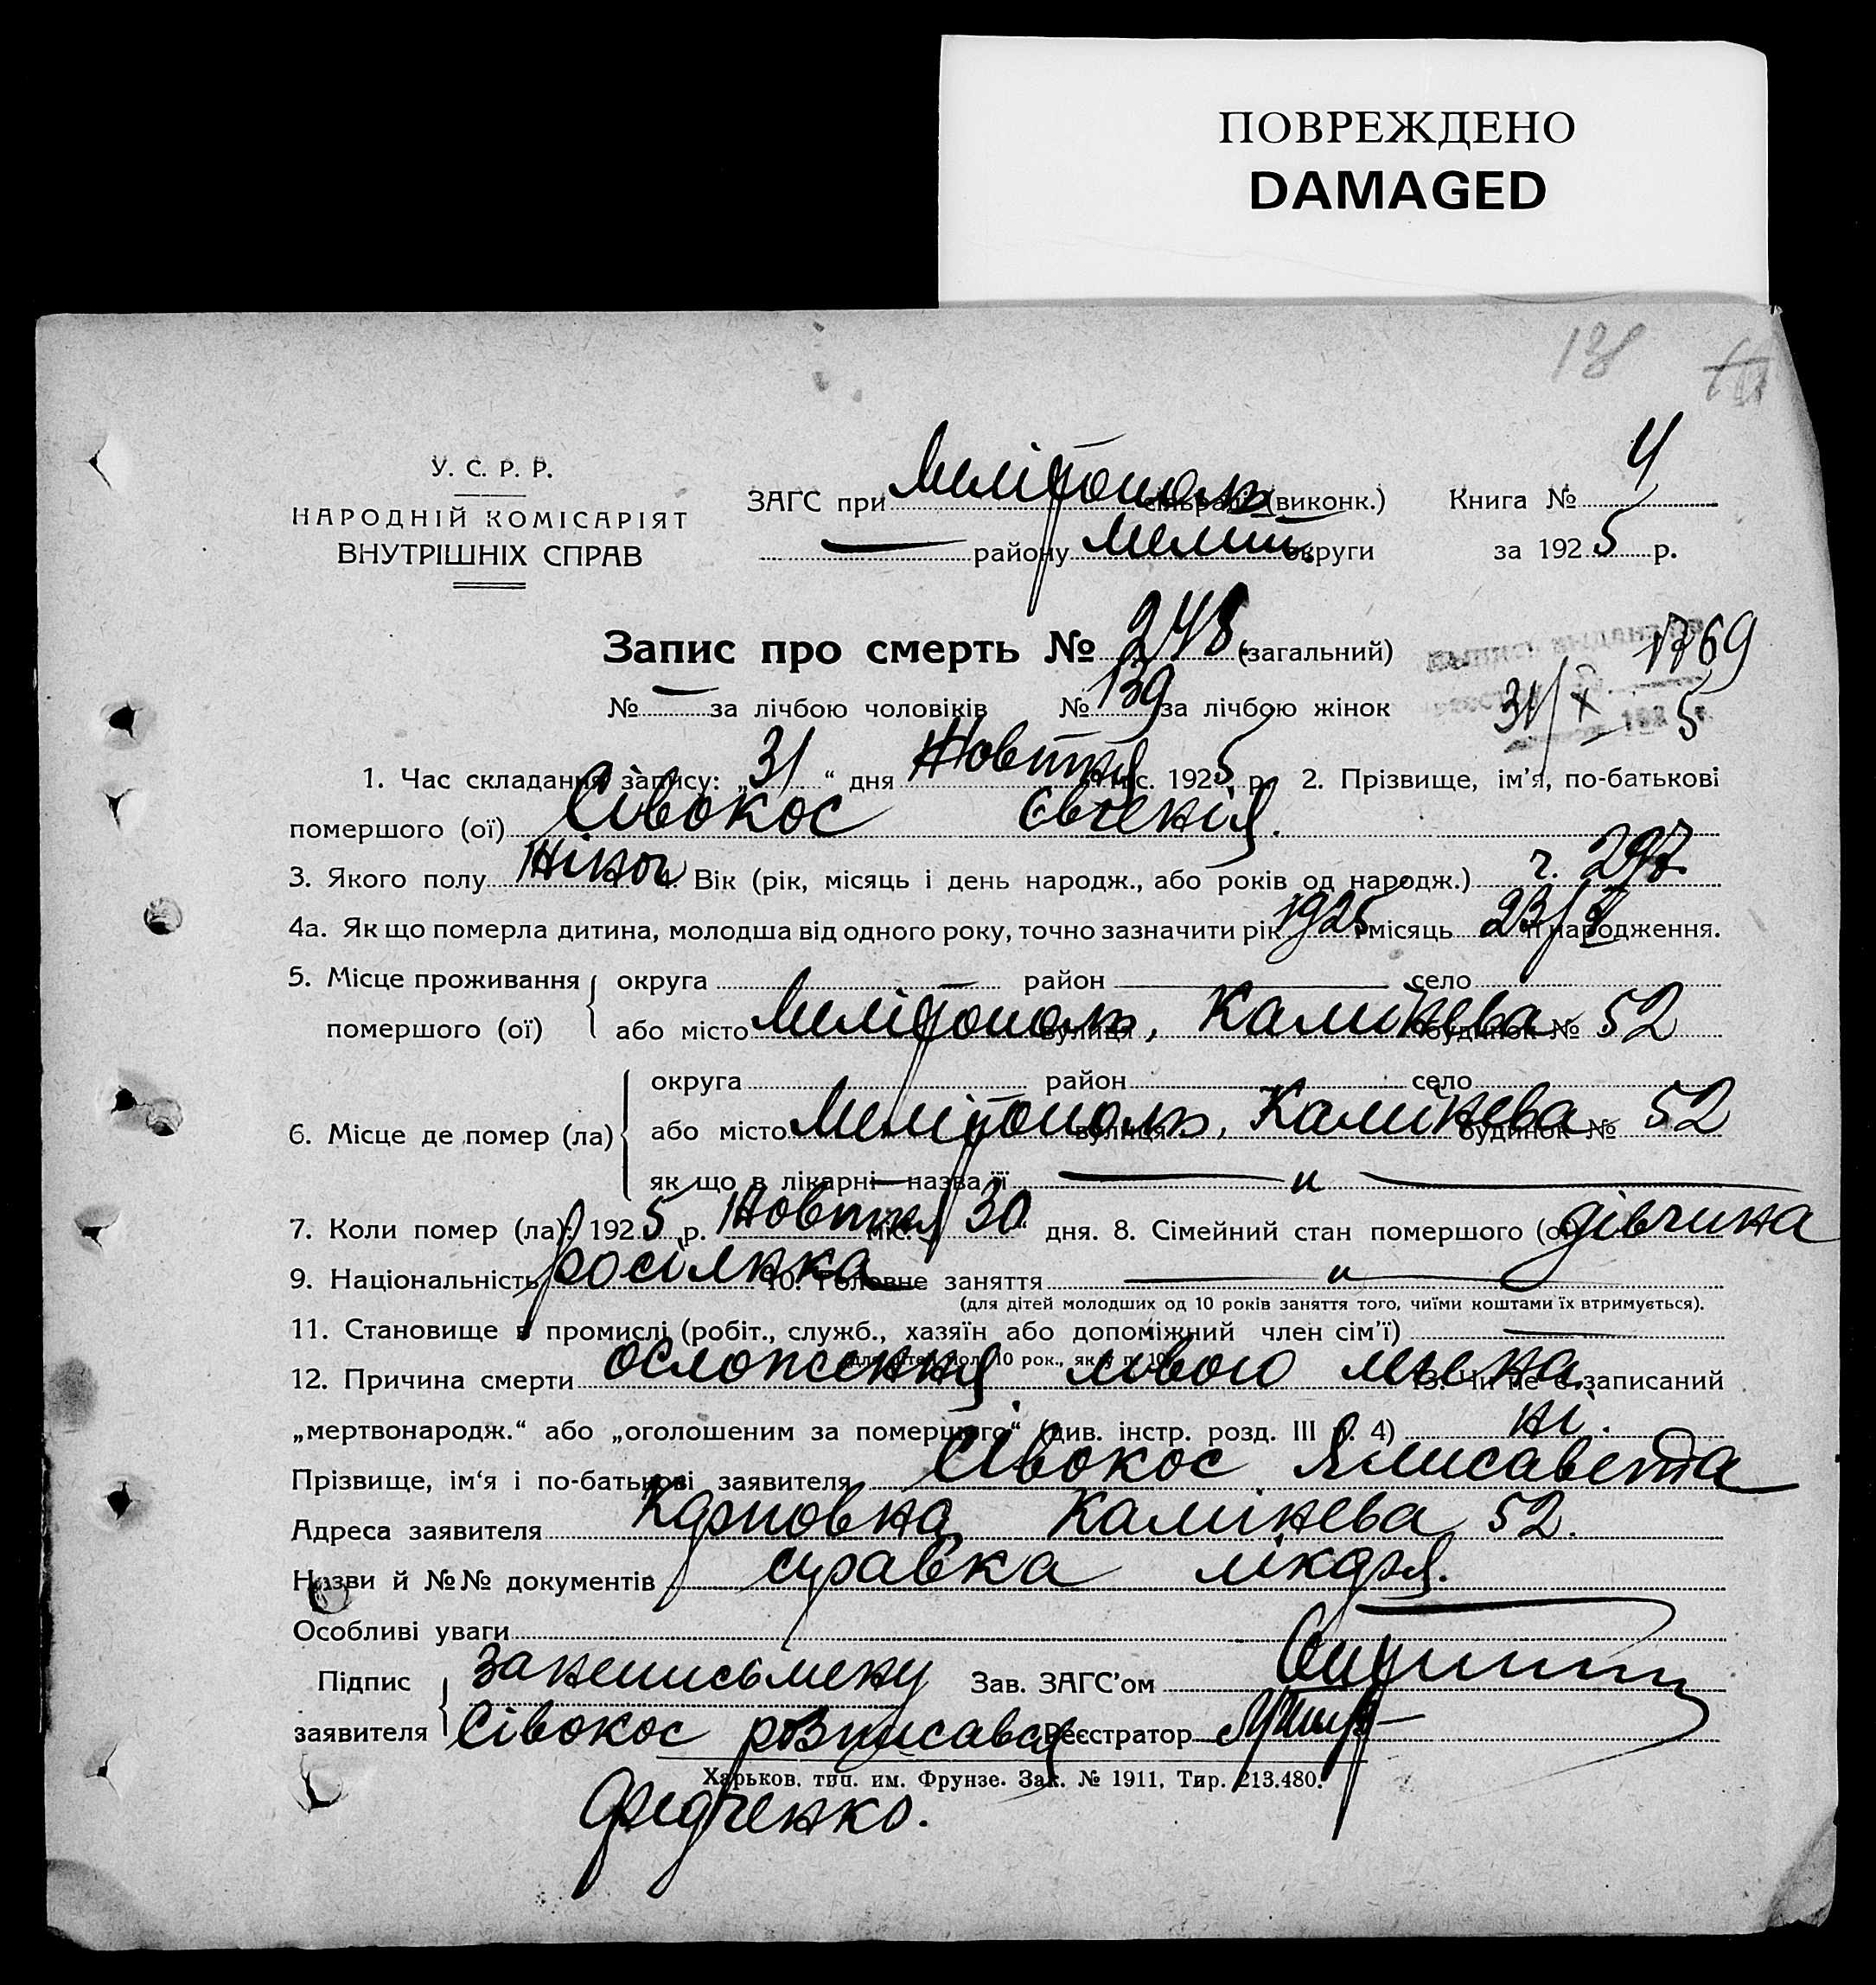 ПОВРЕЖДЕНО
DAMAGED
18
У. С. Р. Р.
НАРОДНІЙ КОМІСАРІЯТ
ВНУТРІШНІХ СПРАВ
ЗАГС при Мелітополь сільраді (виконк.) Книга № 4
— району Мелит. округи за 1925 р.
Запис про смерть № 248 (загальний)
№ — за лічбою чоловіків № 139 за лічбою жінок
1769
31/X 5
1. Час складання запису: „31“ дня Жовтня міс. 1925 р. 2. Прізвище, ім'я, по-батькові
помершого (ої) Сівокос Євгенія.
3. Якого полу Жіноч 4. Вік (рік, місяць і день народж., або років од народж.) г. 297.
4а. Як що померла дитина, молодша від одного року, точно зазначити рік 1925 місяць 23/ народження.
5. Місце проживання помершого (ої) округа — район — село
або місто Мелітополь, вулиця Калінева будинок № 52
6. Місце де помер (ла) округа район село
або місто Мелітополь, вулиця Калінева будинок № 52
як що в лікарні—назва її — „ —
7. Коли помер (ла): 1925 р. Жовтня міс. 30 дня. 8. Сімейний стан помершого (ої) дівчина
9. Національність росіянка 10. Головне заняття — „ —
(для дітей молодших од 10 років заняття того, чиїми коштами їх втримується).
11. Становище в промислі (робіт., служб., хазяїн або допоміжний член сім'ї) —
12. Причина смерти осложення 13. Чи не є записаний
„мертвонародж.“ або „оголошеним за помершого“ (див. інстр. розд. III п. 4) ні.
Прізвище, ім'я і по-батькові заявителя Сівокос Ялисавета
Адреса заявителя Карповна Калінева 52.
Назви й №№ документів справка лікаря.
Особливі уваги
Підпис заявителя за неписьмену Зав. ЗАГС'ом
Сівокос розписався Реєстратор
Харьков, тип. им. Фрунзе. Зак. № 1911, Тир. 213.480.
Федченко.